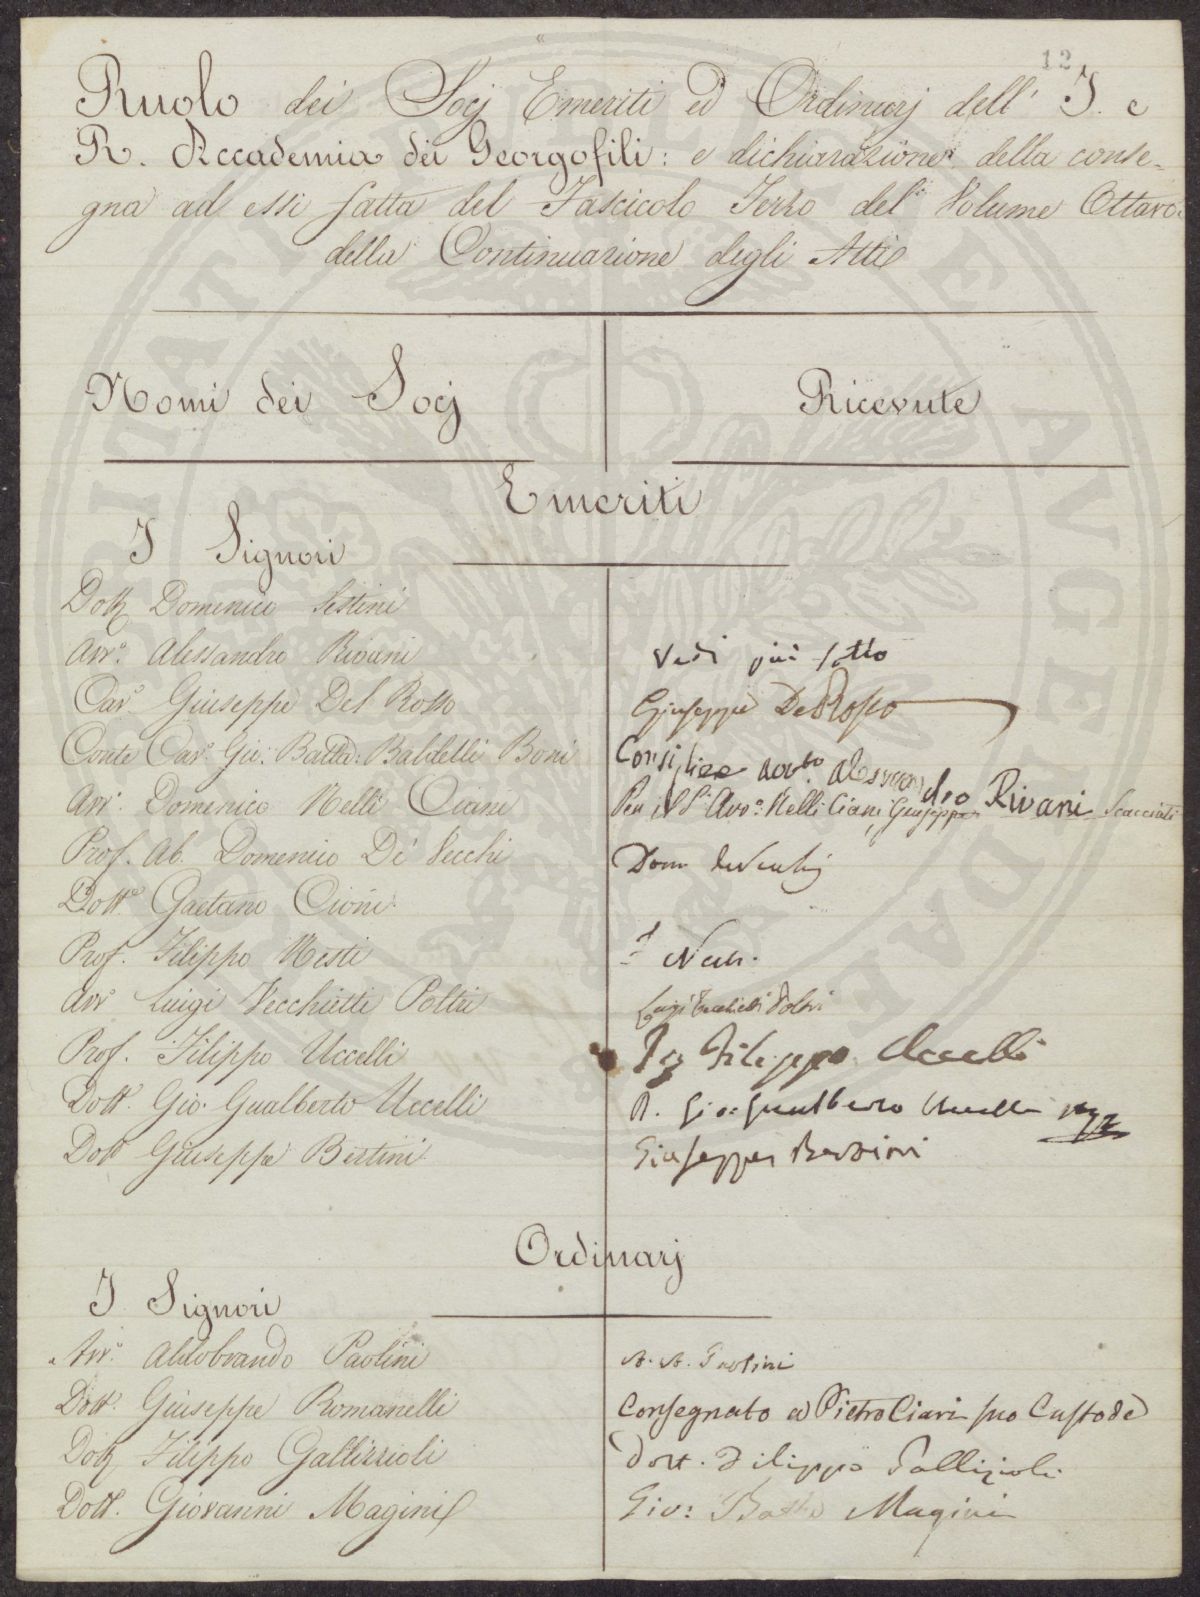 12
Ruolo dei Socj Emeriti ed Ordinarj dell' I. e
R. Accademia dei Georgofili: e dichiarazione della conse-
gna ad essi fatta del Fascicolo Terzo del Volume Ottavo
della Continuazione degli Atti
Nomi dei Socj Ricevute
Emeriti
I Signori
Dott. Domenico Sestini
Avv.º Alessandro Rivani Vedi più sotto
Cav.e Giuseppe Del Rosso Giuseppe Del Rosso
Conte Cav.e Gio: Batta: Baldelli Boni Consigliere Avv.to Alessandro Rivani
Avv.º Domenico Nelli Ciani Per il Sig. Avv.º Nelli Ciani Giuseppe Scacciati
Prof. Ab. Domenico De' Vecchi Dom. de Vecchi
Dott.e Gaetano Cioni
Prof. Filippo Nesti Nesti
Avv.º Luigi Vecchietti Poltri Luigi Vecchietti Poltri
Prof. Filippo Uccelli Filippo Uccelli
Dott. Gio. Gualberto Uccelli D. Gio: Gualberto Uccelli
Dott. Giuseppe Bertini Giuseppe Bertini
Ordinarj
I Signori
Avv.º Aldobrando Paolini A. A. Paolini
Dott. Giuseppe Romanelli Consegnato a Pietro Ciari suo Custode
Dott. Filippo Gallizzioli Dott. Filippo Gallizioli
Dott. Giovanni Magini Gio: Batta Magini